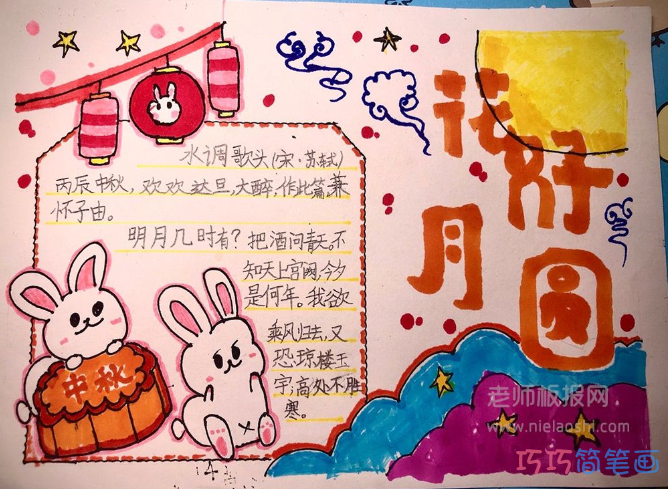 水调歌头(宋·苏轼)
丙辰中秋,欢欢达旦,大醉,作此篇,兼
怀子由。
明月几时有?把酒问青天。不
知天上宫阙,今夕
是何年。我欲
乘风归去,又
恐琼楼玉
宇,高处不胜
寒。
中秋
花好
月圆
老师板报网
www.nielaoshi.com
巧巧简笔画